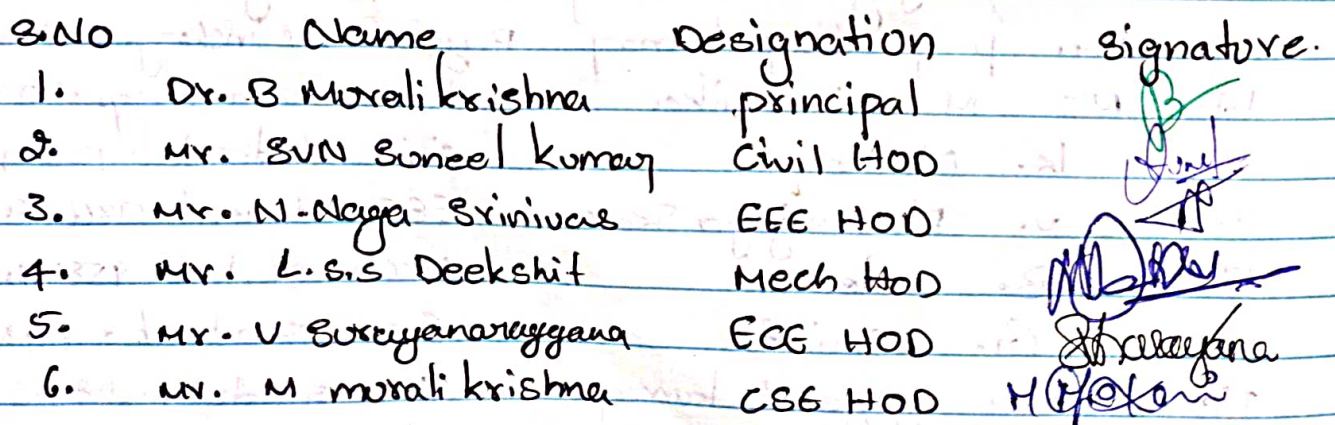 S.NO Name Designation Signature.
1. Dr. B Murali krishna principal
2. Mr. SVN Suneel kumar Civil HOD
3. Mr. N. Naga Srinivas EEE HOD
4. Mr. L.S.S Deekshit Mech HOD
5. Mr. V Suryanarayana ECE HOD
6. Mr. M murali krishna CSE HOD